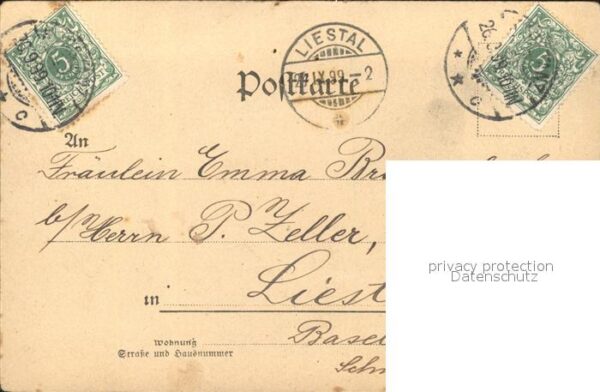 LIESTAL
IX.99.-2
Postkarte
5
5
An
Fräulein Emma
b/Herrn P. Zeller,
in Liest
Wohnung
Straße und Hausnummer
Base
Sch
privacy protection
Datenschutz